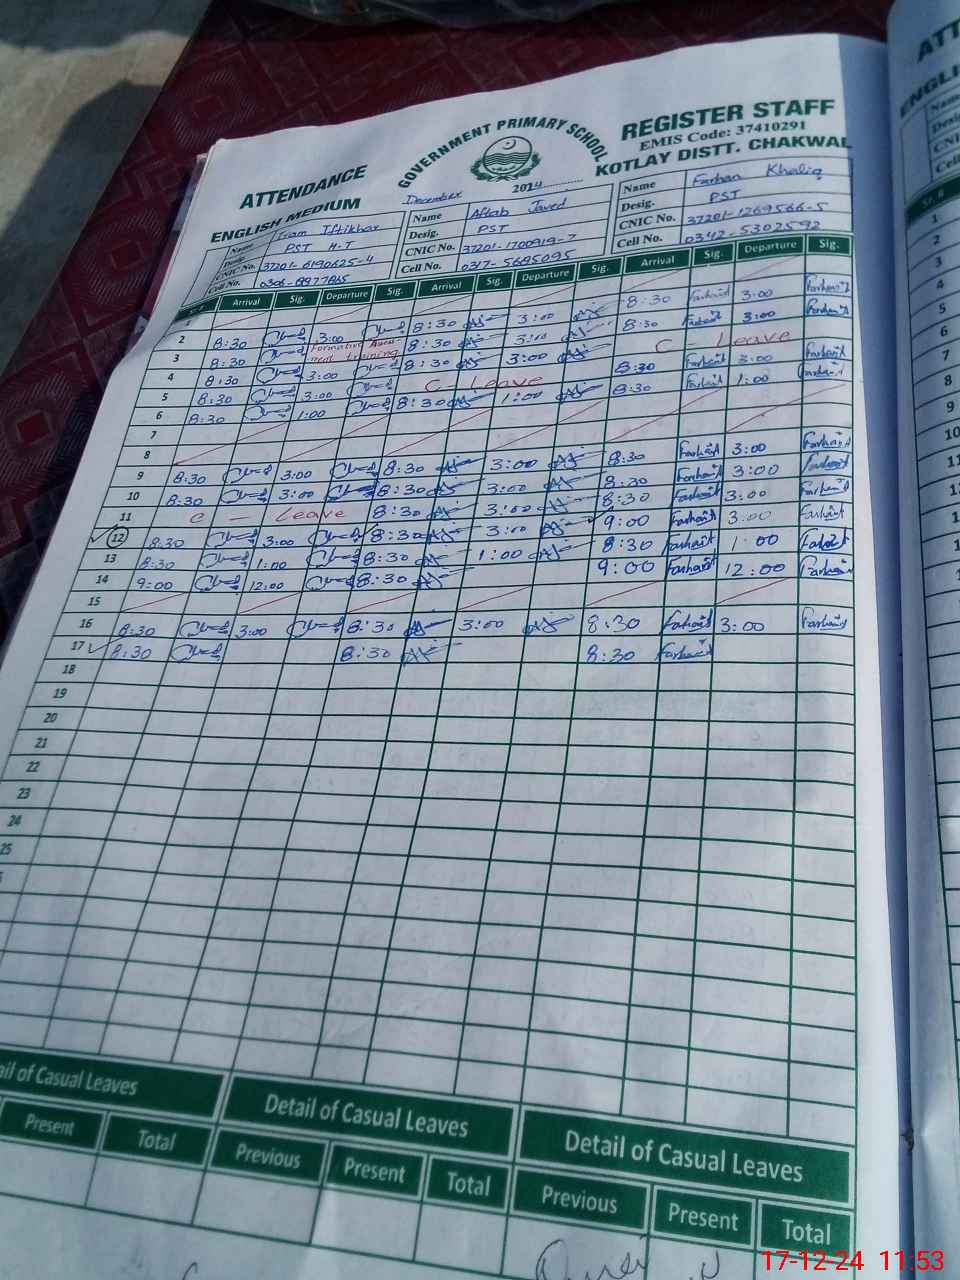 REGISTER STAFF
GOVERNMENT PRIMARY SCHOOL
EMIS Code: 37410291
ATTENDANCE
KOTLAY DISTT. CHAKWAL
ENGLISH MEDIUM December 2024
Name Iram Iftikhar Name Aftab Javed Name Farhan Khaliq
Desig. PST H.T Desig. PST Desig. PST
CNIC No. 37201-6190625-4 CNIC No. 37201-1700919-7 CNIC No. 37201-1269566-5
Cell No. 0306-8977865 Cell No. 0317-5685095 Cell No. 0342-5302592
Sr. # Arrival Sig. Departure Sig. Arrival Sig. Departure Sig. Arrival Sig. Departure Sig.
1
2 8:30 3:00 8:30 3:00 8:30 Farhan 3:00 Farhan
3 8:30 Formative Assessment training 8:30 3:00 8:30 Farhan 3:00 Farhan
4 8:30 3:00 8:30 3:00 C - Leave
5 8:30 3:00 C - Leave 8:30 Farhan 3:00 Farhan
6 8:30 1:00 8:30 1:00 8:30 Farhan 1:00 Farhan
7
8
9 8:30 3:00 8:30 3:00 8:30 Farhan 3:00 Farhan
10 8:30 3:00 8:30 3:00 8:30 Farhan 3:00 Farhan
11 C - Leave 8:30 3:00 8:30 Farhan 3:00 Farhan
12 8:30 3:00 8:30 3:00 9:00 Farhan 3:00 Farhan
13 8:30 1:00 8:30 1:00 8:30 Farhan 1:00 Farhan
14 9:00 12:00 8:30 9:00 Farhan 12:00 Farhan
15
16 8:30 3:00 8:30 3:00 8:30 Farhan 3:00 Farhan
17 8:30 8:30 8:30 Farhan
18
19
20
21
22
23
24
25
Detail of Casual Leaves Detail of Casual Leaves Detail of Casual Leaves
Present Total Previous Present Total Previous Present Total
17-12-24 11:53